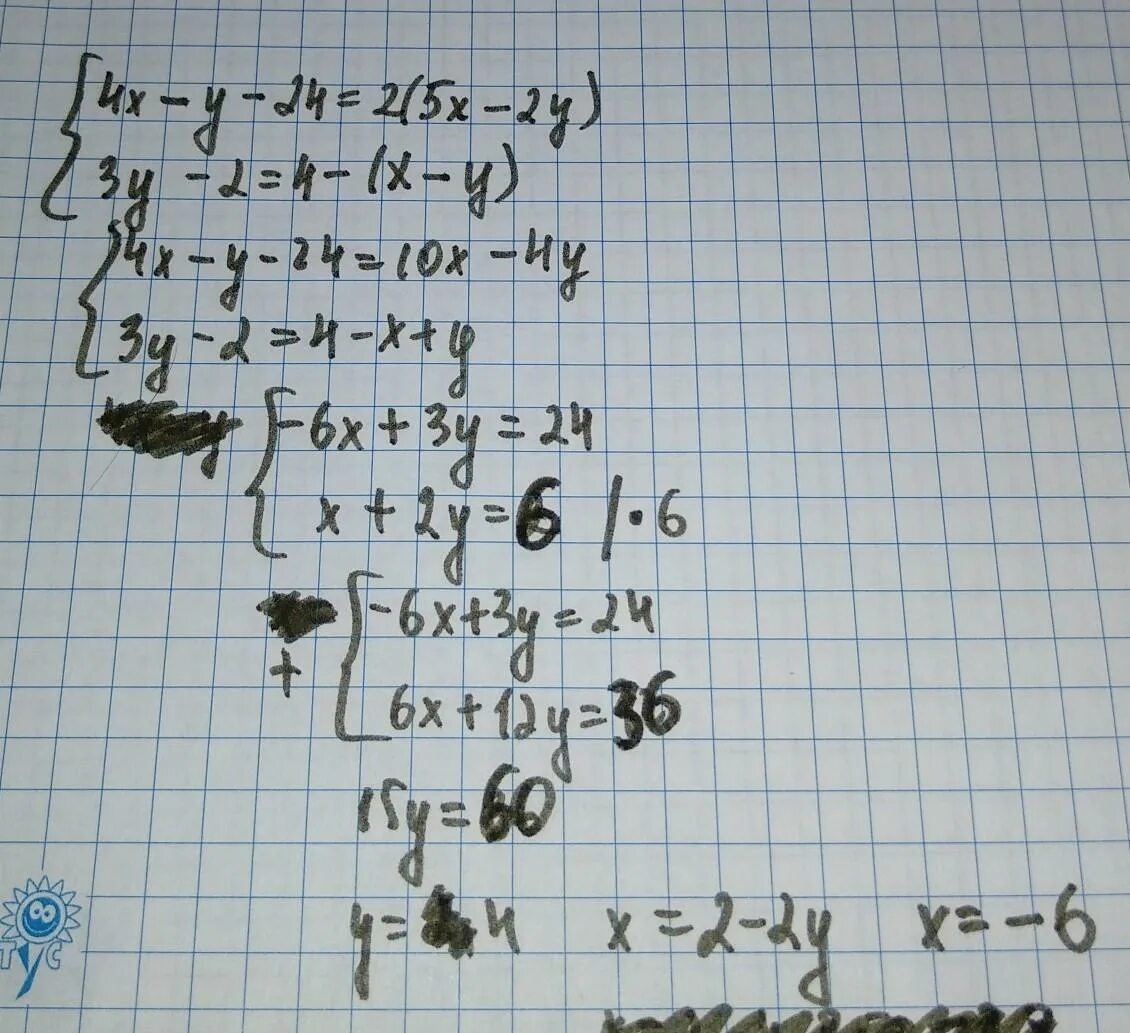 4x - y - 24 = 2(5x - 2y)
3y - 2 = 4 - (x - y)
4x - y - 24 = 10x - 4y
3y - 2 = 4 - x + y
-6x + 3y = 24
x + 2y = 6 | · 6
-6x + 3y = 24
+
6x + 12y = 36
15y = 60
y = 4 x = 2 - 2y x = -6
TYC